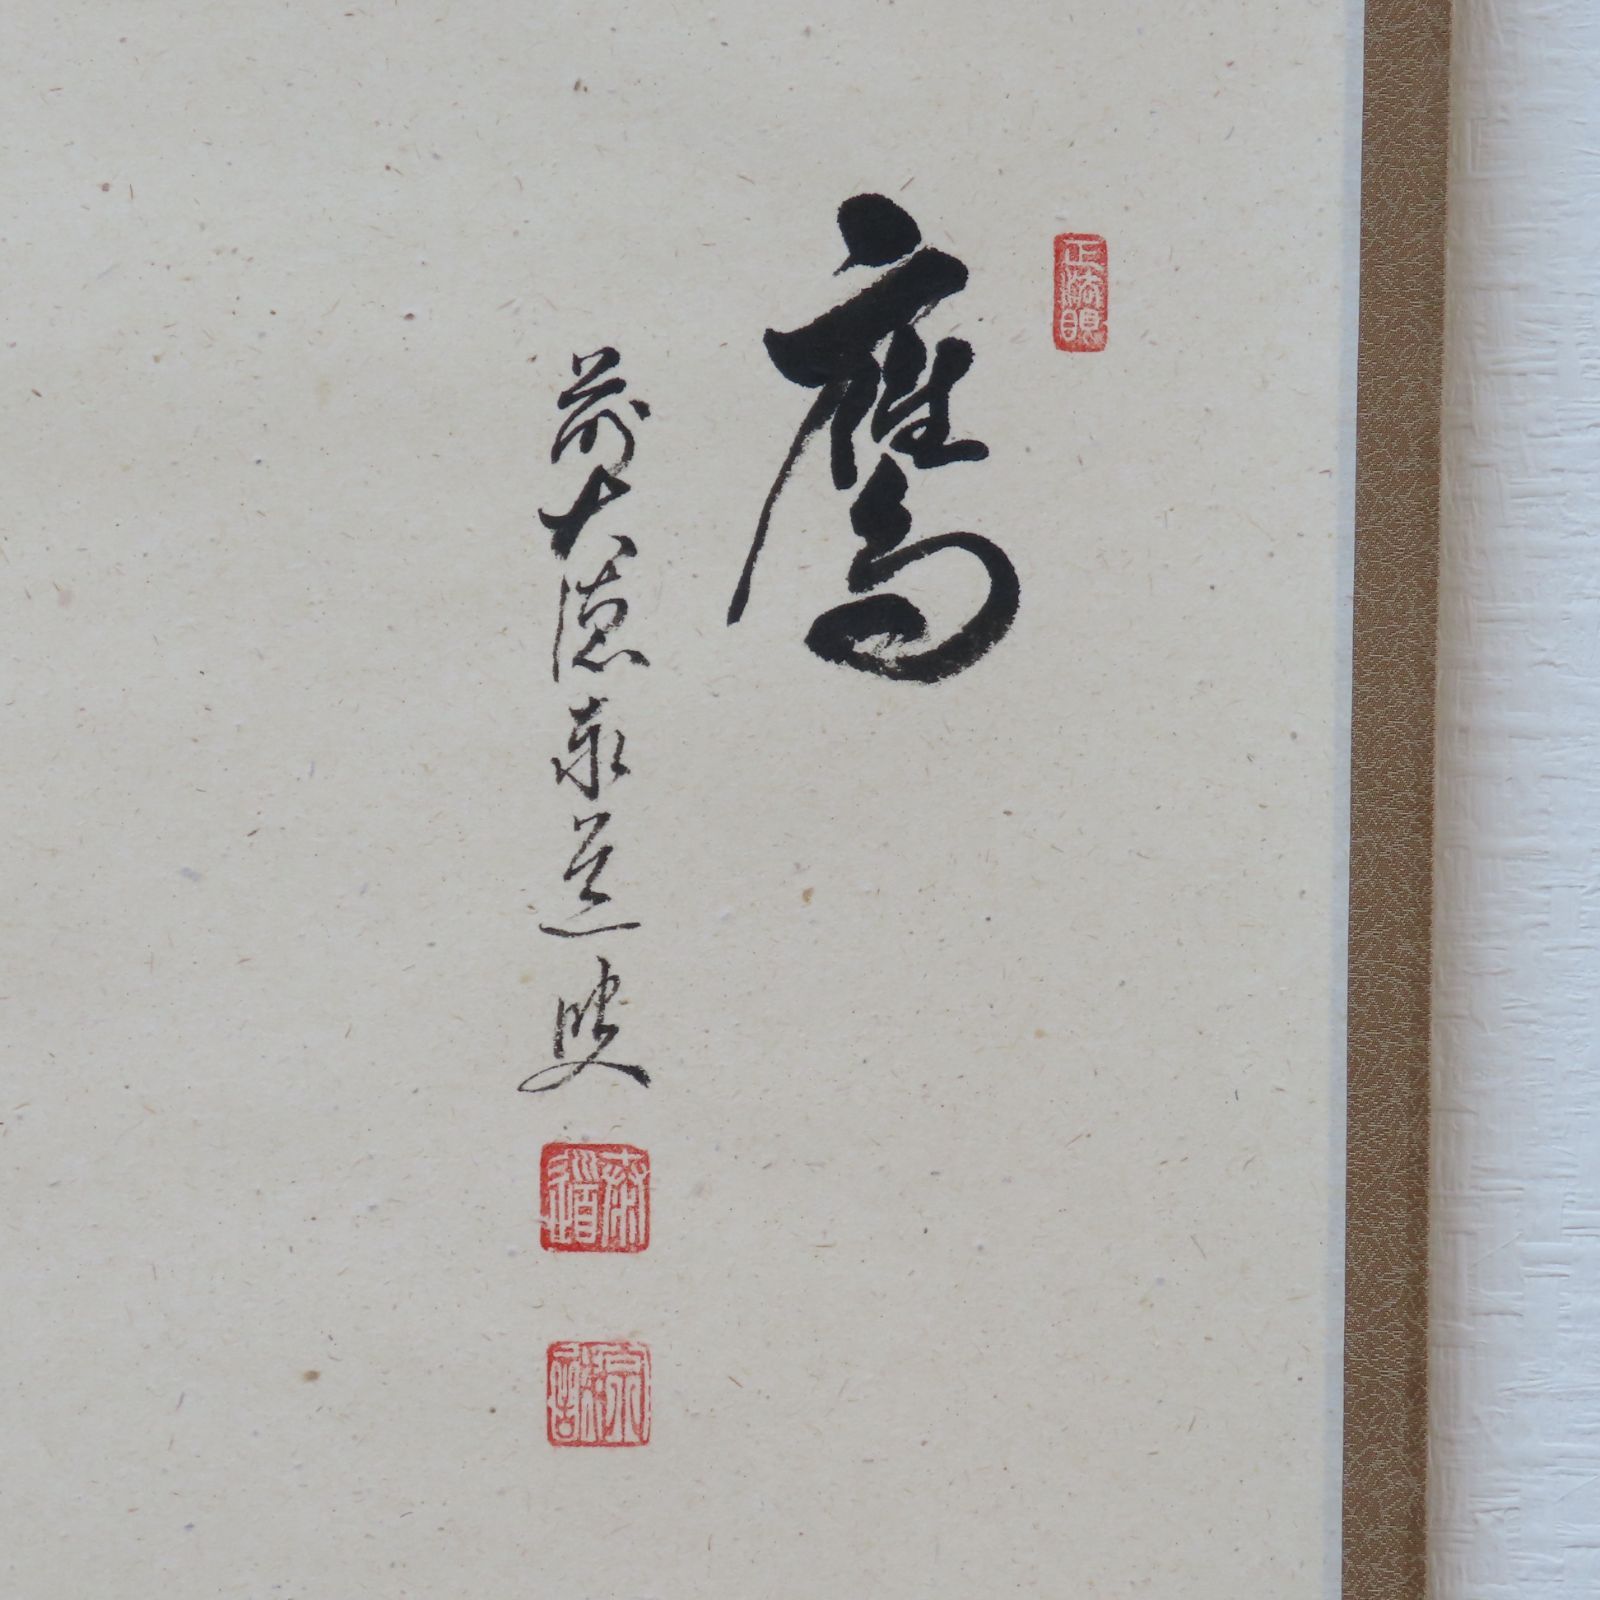 正法眼
鷹
前大徳泰道叟
泰道